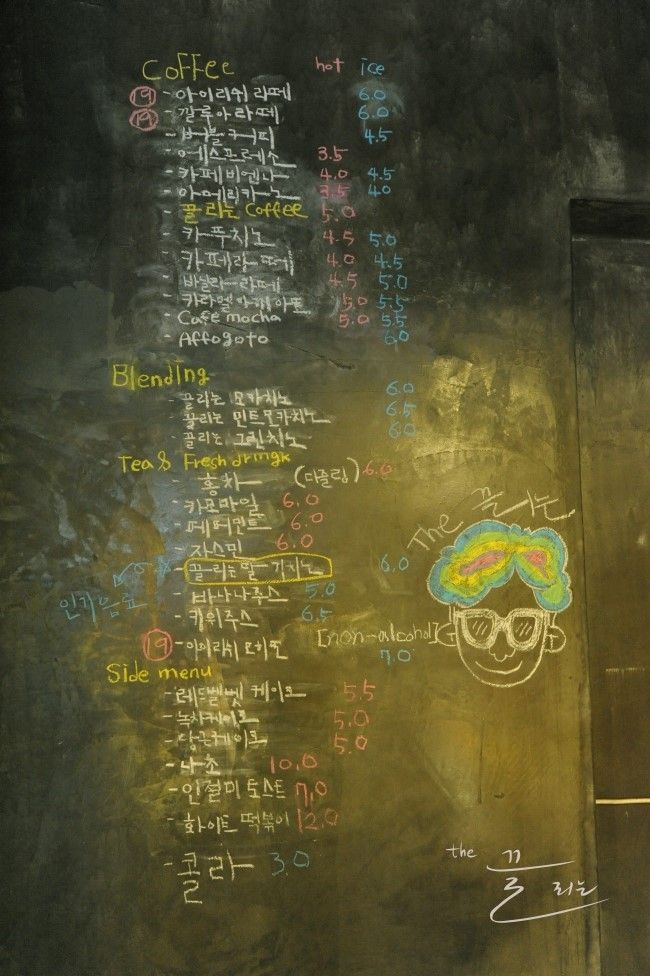 Coffee hot ice
19 - 아이리쉬 라떼 6.0
19 - 깔루아 라떼 6.0
- 버블 커피 4.5
- 에스프레소 3.5
- 카페 비엔나 4.0 4.5
- 아메리카노 3.5 4.0
- 끌리는 Coffee 5.0
- 카푸치노 4.5 5.0
- 카페라떼 4.0 4.5
- 바닐라라떼 4.5 5.0
- 카라멜마끼아또 5.0 5.5
- Cafe mocha 5.0 5.5
- Affogoto 6.0
Blending
- 끌리는 모카치노 6.0
- 끌리는 민트모카치노 6.5
- 끌리는 그린치노 6.0
Tea & Fresh dringk
- 홍차 (다즐링) 6.0
- 카모마일 6.0
- 페퍼민트 6.0
- 자스민 6.0
- 끌리는딸기치노 6.0
인기음료
- 바나나주스 5.0
- 키위주스 6.5
19 - 모히또 [non-alcohol] 7.0
The 끌리는
Side menu
- 레드벨벳 케이크 5.5
- 녹차케이크 5.0
- 당근케이크 5.0
- 나초 10.0
- 인절미 토스트 7.0
- 화이트 떡볶이 12.0
- 콜라 3.0
the 끌리는